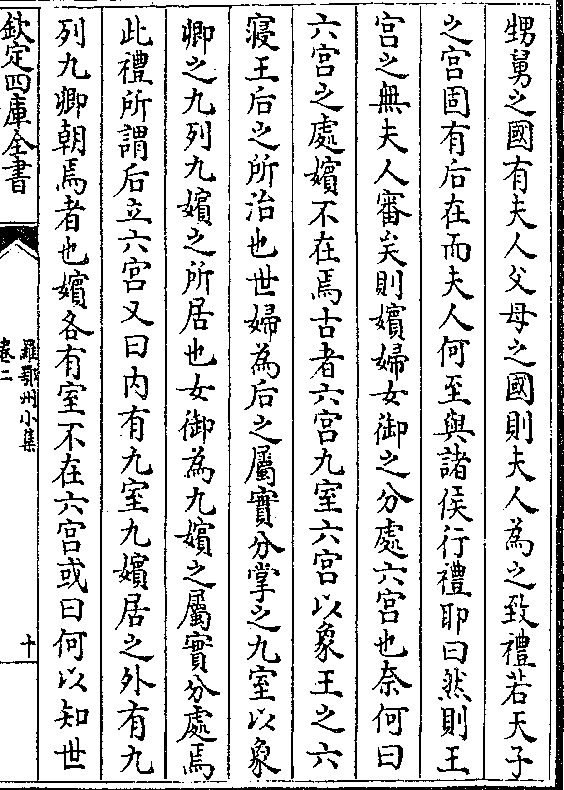 甥舅之國有夫人父母之國則夫人為之致禮若天子
之宫固有后在而夫人何至與諸侯行禮耶曰然則王
宫之無夫人審矣則嬪婦女御之分處六宫也奈何曰
六宫之處嬪不在焉古者六宫九室六宫以象王之六
寢王后之所治也世婦為后之屬實分掌之九室以象
卿之九列九嬪之所居也女御為九嬪之屬實分處焉
此禮所謂后立六宫又曰内有九室九嬪居之外有九
列九卿朝焉者也嬪各有室不在六宫或曰何以知世
欽定四庫全書
羅鄂州小集
卷二
十